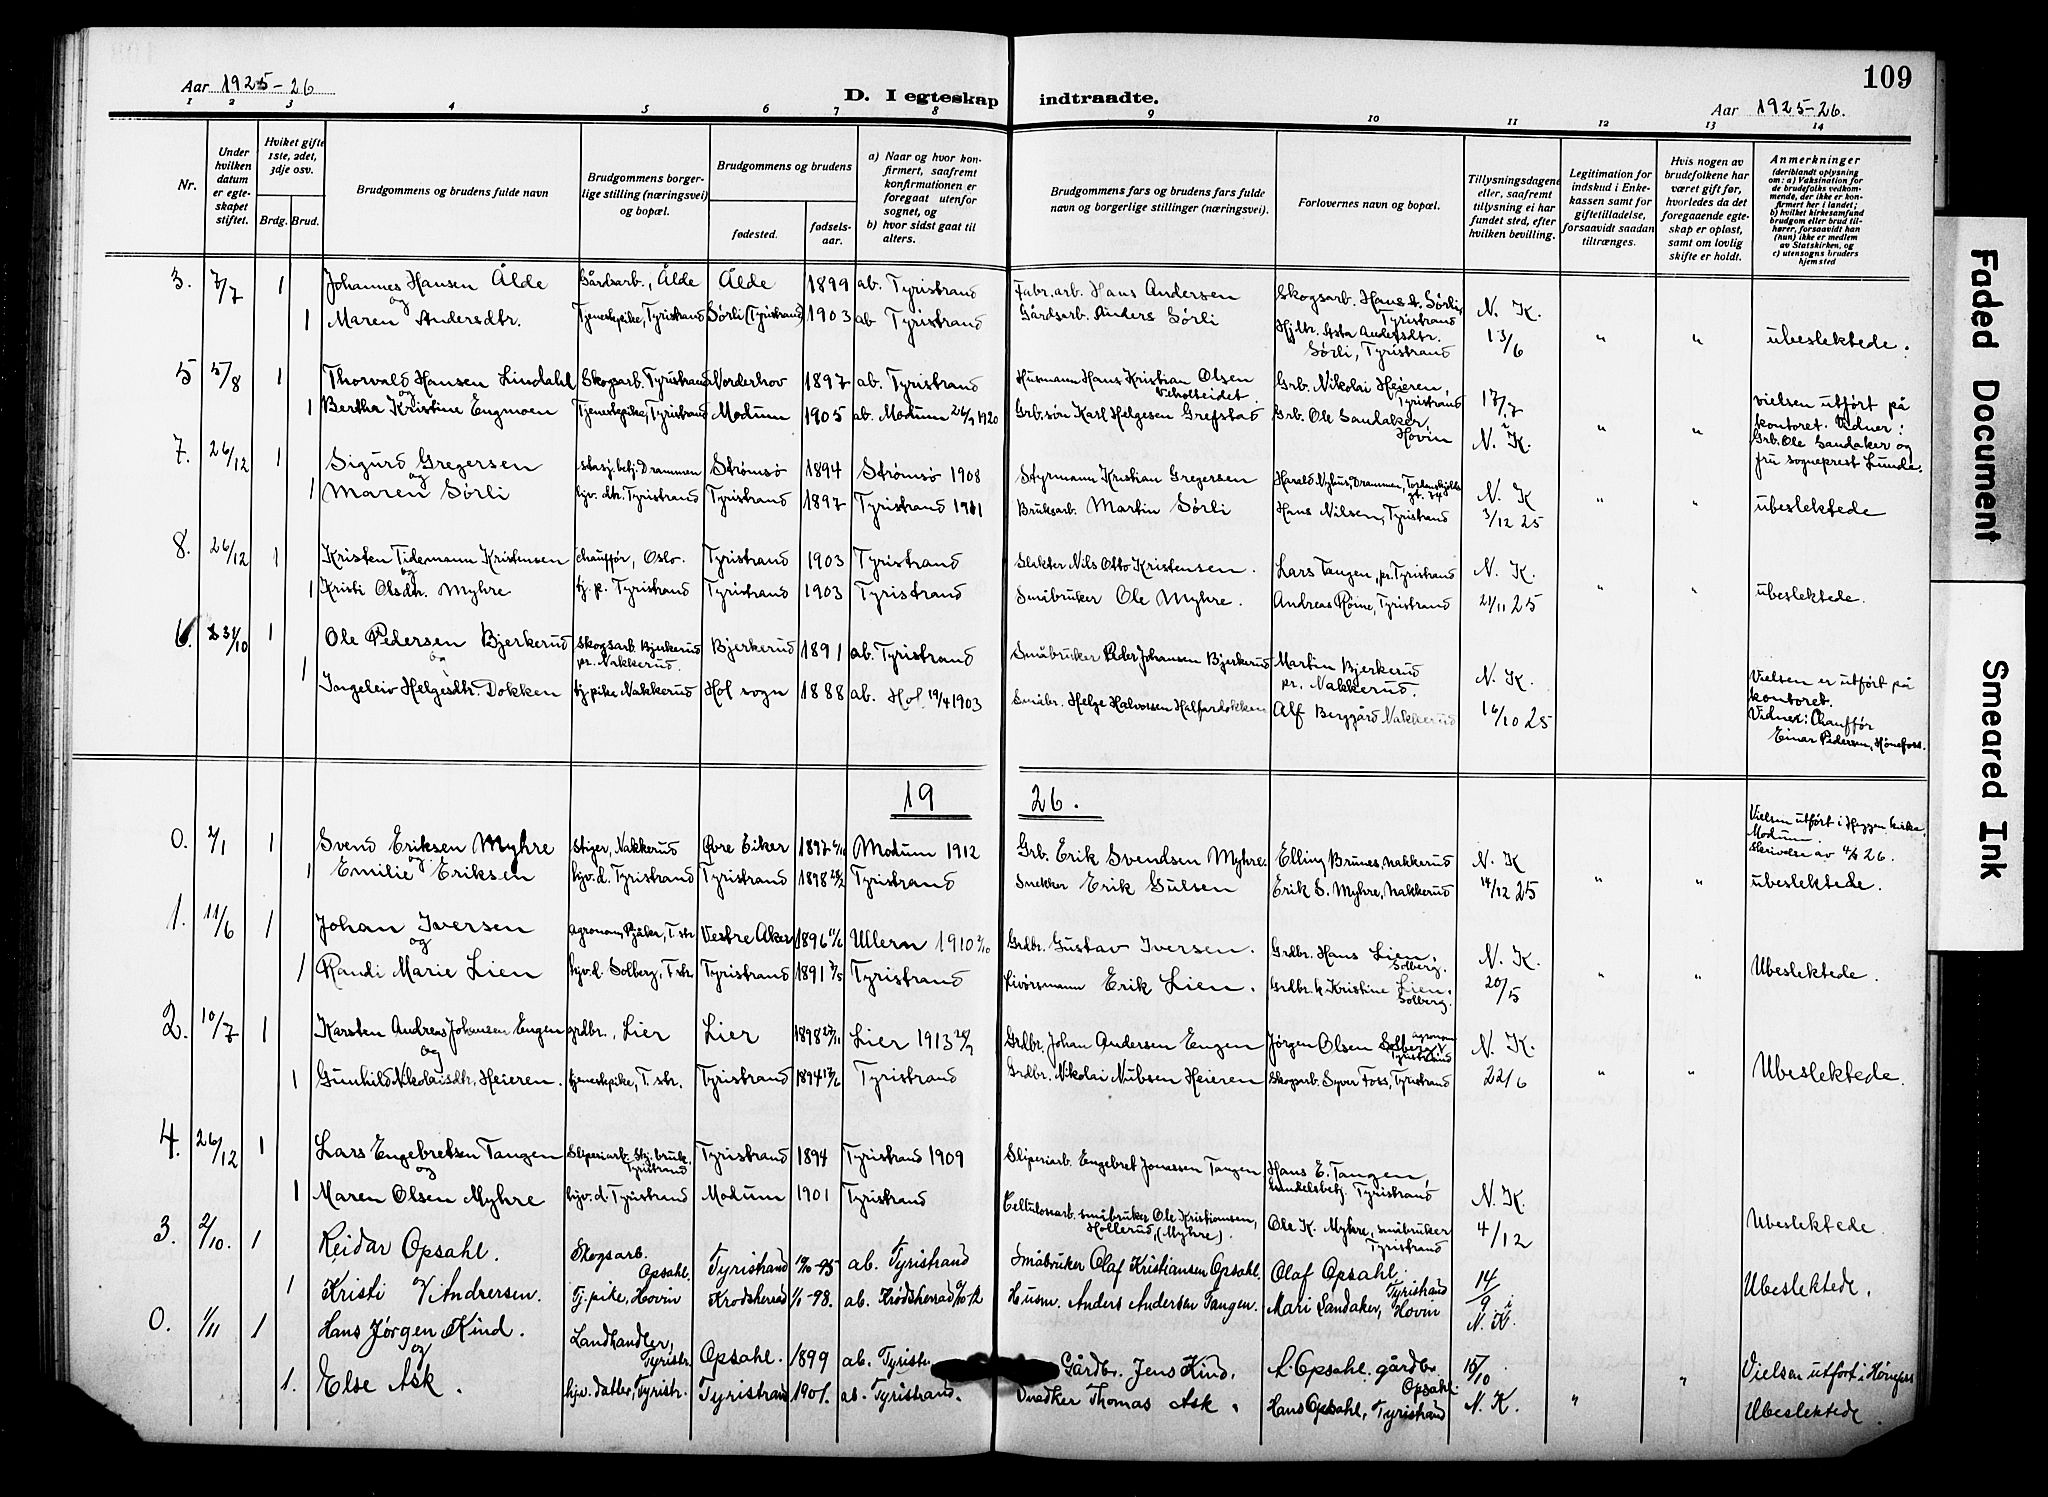 109
Aar 1925-26
D. I egteskap indtraadte.
Aar 1925-26.
1 2 3 4 5 6 7 8 9 10 11 12 13 14
Nr.
Under hvilken datum er egteskapet stiftet.
Hvilket gifte 1ste, 2det, 3dje osv.
Brdg. Brud.
Brudgommens og brudens fulde navn
Brudgommens borgerlige stilling (næringsvei) og bopæl.
Brudgommens og brudens
fødested.
fødselsaar.
a) Naar og hvor konfirmert, saafremt konfirmationen er foregaat utenfor sognet, og
b) hvor sidst gaat til alters.
Brudgommens fars og brudens fars fulde navn og borgerlige stillinger (næringsvei).
Forlovernes navn og bopæl.
Tillysningsdagene eller, saafremt tillysning ei har fundet sted, efter hvilken bevilling.
Legitimation for indskud i Enkekassen samt for giftetilladelse, forsaavidt saadan tiltrænges.
Hvis nogen av brudefolkene har været gift før, hvorledes da det foregaaende egteskap er opløst, samt om lovlig skifte er holdt.
Anmerkninger (deriblandt oplysning om: a) Vaksination for de brudefolks vedkommende, der ikke er konfirmert her i landet; b) hvilket kirkesamfund brudgom eller brud tilhører, forsaavidt han (hun) ikke er medlem av Statskirken, og c) utensogns bruders hjemsted
3. 7/7 1 Johannes Hansen Ålde Gårdsarb., Ålde Ålde 1899 ab. Tyristrand Fabr.arb. Hans Andersen Skogsarb. Hans A. Sørli, Tyristrand N. K.
og
1 Maren Andersdtr. Tjenestepike, Tyristrand Sørli (Tyristrand) 1903 ab Tyristrand Gårdsarb. Anders Sørli Hjdtr. Asta Andersdtr. Sørli, Tyristrand 13/6 " " ubeslektede.
5 5/8 1 Thorvald Hansen Lindahl Skogsarb. Tyristrand Norderhov 1897 ab. Tyristrand Husmann Hans Kristian Olsen Grb. Nikolai Heieren, Tyristrand 17/7
og
1 Bertha Kristine Engmoen Tjenestepike, Tyristrand Modum 1905 ab. Modum 26/9 1920 Grb.søn Karl Helgesen Grefstad Grb. Ole Sandaker, Hovin N. K. " " vielsen utført på kontoret. Vidner: Grb. Ole Sandaker og fru sogneprest Lunde.
7. 26/12 1 Sigurd Gregersen stasj.betj. Drammen Strømsø 1894 Strømsø 1908 Styrmann Kristian Gregersen Harald Nyhus, Drammen, Tordenskjolds gt. 74 N. K
og
1 Maren Sørli hjv. dtr. Tyristrand Tyristrand 1897 Tyristrand 1911 Bruksarb. Martin Sørli Hans Nilsen, Tyristrand 3/12 25 " " ubeslektede
8. 26/12 1 Kristen Tidemann Kristensen chauffør, Oslo. Tyristrand 1903 Tyristrand Slakter Nils Otto Kristensen. Lars Tangen, pr. Tyristrand N. K.
og
1 Kristi Olsdtr. Myhre tj. p. Tyristrand Tyristrand 1903 Tyristrand Småbruker Ole Myhre. Andreas Roine, Tyristrand 21/11 25 " " ubeslektede.
6. 31/10 1 Ole Pedersen Bjerkerud Skogsarb. Bjerkerud pr. Nakkerud. Bjerkerud 1891 ab. Tyristrand Småbruker Peder Johansen Bjerkerud Martin Bjerkerud pr. Nakkerud. N. K.
og
1 Ingeleiv Helgesdtr. Dokken tj.pike Nakkerud Hol sogn 1888 ab. Hol 19/4 1903 Småbr. Helge Halvorsen Halfardokken Alf Berggård Nakkerud 16/10 25 Vielsen er utført på kontoret. Vidner: Chauffør Einar Pedersen, Hønefoss.
19 26.
0. 2/1 1 Svend Eriksen Myhre stiger, Nakkerud Øvre Eiker 1897 Modum 1912 Grb. Erik Svendsen Myhre. Elling Brunes, Nakkerud N. K Vielsen utført i Heggen kirke. Modum Skrivelse av 4/3 26.
og
1 Emilie Eriksen hjv.d. Tyristrand Tyristrand 1898 28/2 Tyristrand Snekker Erik Gulsen Erik S. Myhre, Nakkerud 14/12 25 " " ubeslektede.
1. 11/6 1 Johan Iversen agronom, T. str Vestre Aker 1896 11/6 Ullern 1910 2/10 Grdbr. Gustav Iversen. Grdbr. Hans Lien, Solberg. N. K.
og
1 Randi Marie Lien hjv.d. Solberg, T. str. Tyristrand 1891 7/5 Tyristrand Livørsmann Erik Lien. Grdbr.k Kristine Lien. Solberg. 20/5 " " Ubeslektede.
2. 10/7 1 Karsten Andreas Johansen Engen grdbr., Lier Lier 1898 27/11 Lier 1913 28/9 Grdbr. Johan Andersen Engen Jørgen Olsen agronom Tyristrand N. K.
og
1 Gunhild Nikolaisdtr. Heieren. tjenestepike, T. str. Tyristrand 1894 17/6 Tyristrand Grdbr. Nikolai Nubsen Heieren Skogsarb. Syver Foss, Tyristrand 22/6 " " Ubeslektede.
4. 26/12 1 Lars Engebretsen Tangen Sliperiarb. Stj.bruk, Tyristrand Tyristrand 1894 Tyristrand 1909 Sliperiarb. Engebret Jonassen Tangen Hans E. Tangen, handelsbetj. Tyristrand N. K.
og
1 Maren Olsen Myhre hjv.d. Tyristrand Modum 1901 Tyristrand Cellulosearb. småbruker Ole Kristiansen, Hollerud, (Myhre). Ole K. Myhre, småbruker Tyristrand 4/12 Ubeslektede.
3. 2/10. 1 Reidar Opsahl. Skogsarb. Opsahl. Tyristrand -95 ab. Tyristrand Småbruker Olaf Kristiansen Opsahl. Olaf Opsahl, Tyristrand 14/9
1 Kristi Andersen. Tj.pike, Hovin Krødsherrad -98. ab. Krødsherrad Husm. Anders Andersen Tangen. Mari Sandaker, Hovin N. K. Ubeslektede.
0. 1/11 1 Hans Jørgen Kind. Landhandler, Tyristr. Opsahl. 1899 ab. Tyristr. Gårdbr. Jens Kind. A. Opsahl. gårdbr. Opsahl. 15/10 " Vielsen utført i Hønefoss
og
1. Else Ask. hjv. datter, Tyristr. Tyristrand 1901. ab. Tyristrand. Snedker Thomas Ask. Hans Opsahl, Tyristrand N. K. " Ubeslektede.
Faded Document
Smeared Ink